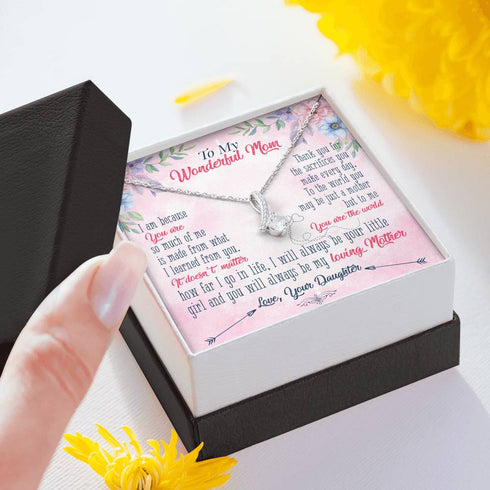 To My
Wonderful Mom
I am because
You are
so much of me
is made from what
I learned from you.
It doesn't matter
Thank you for
the sacrifices you
make every day.
To the world you
may be just a mother
but to me
You are the world
how far I go in life, I will always be your little
girl and you will always be my loving Mother
Love, Your Daughter